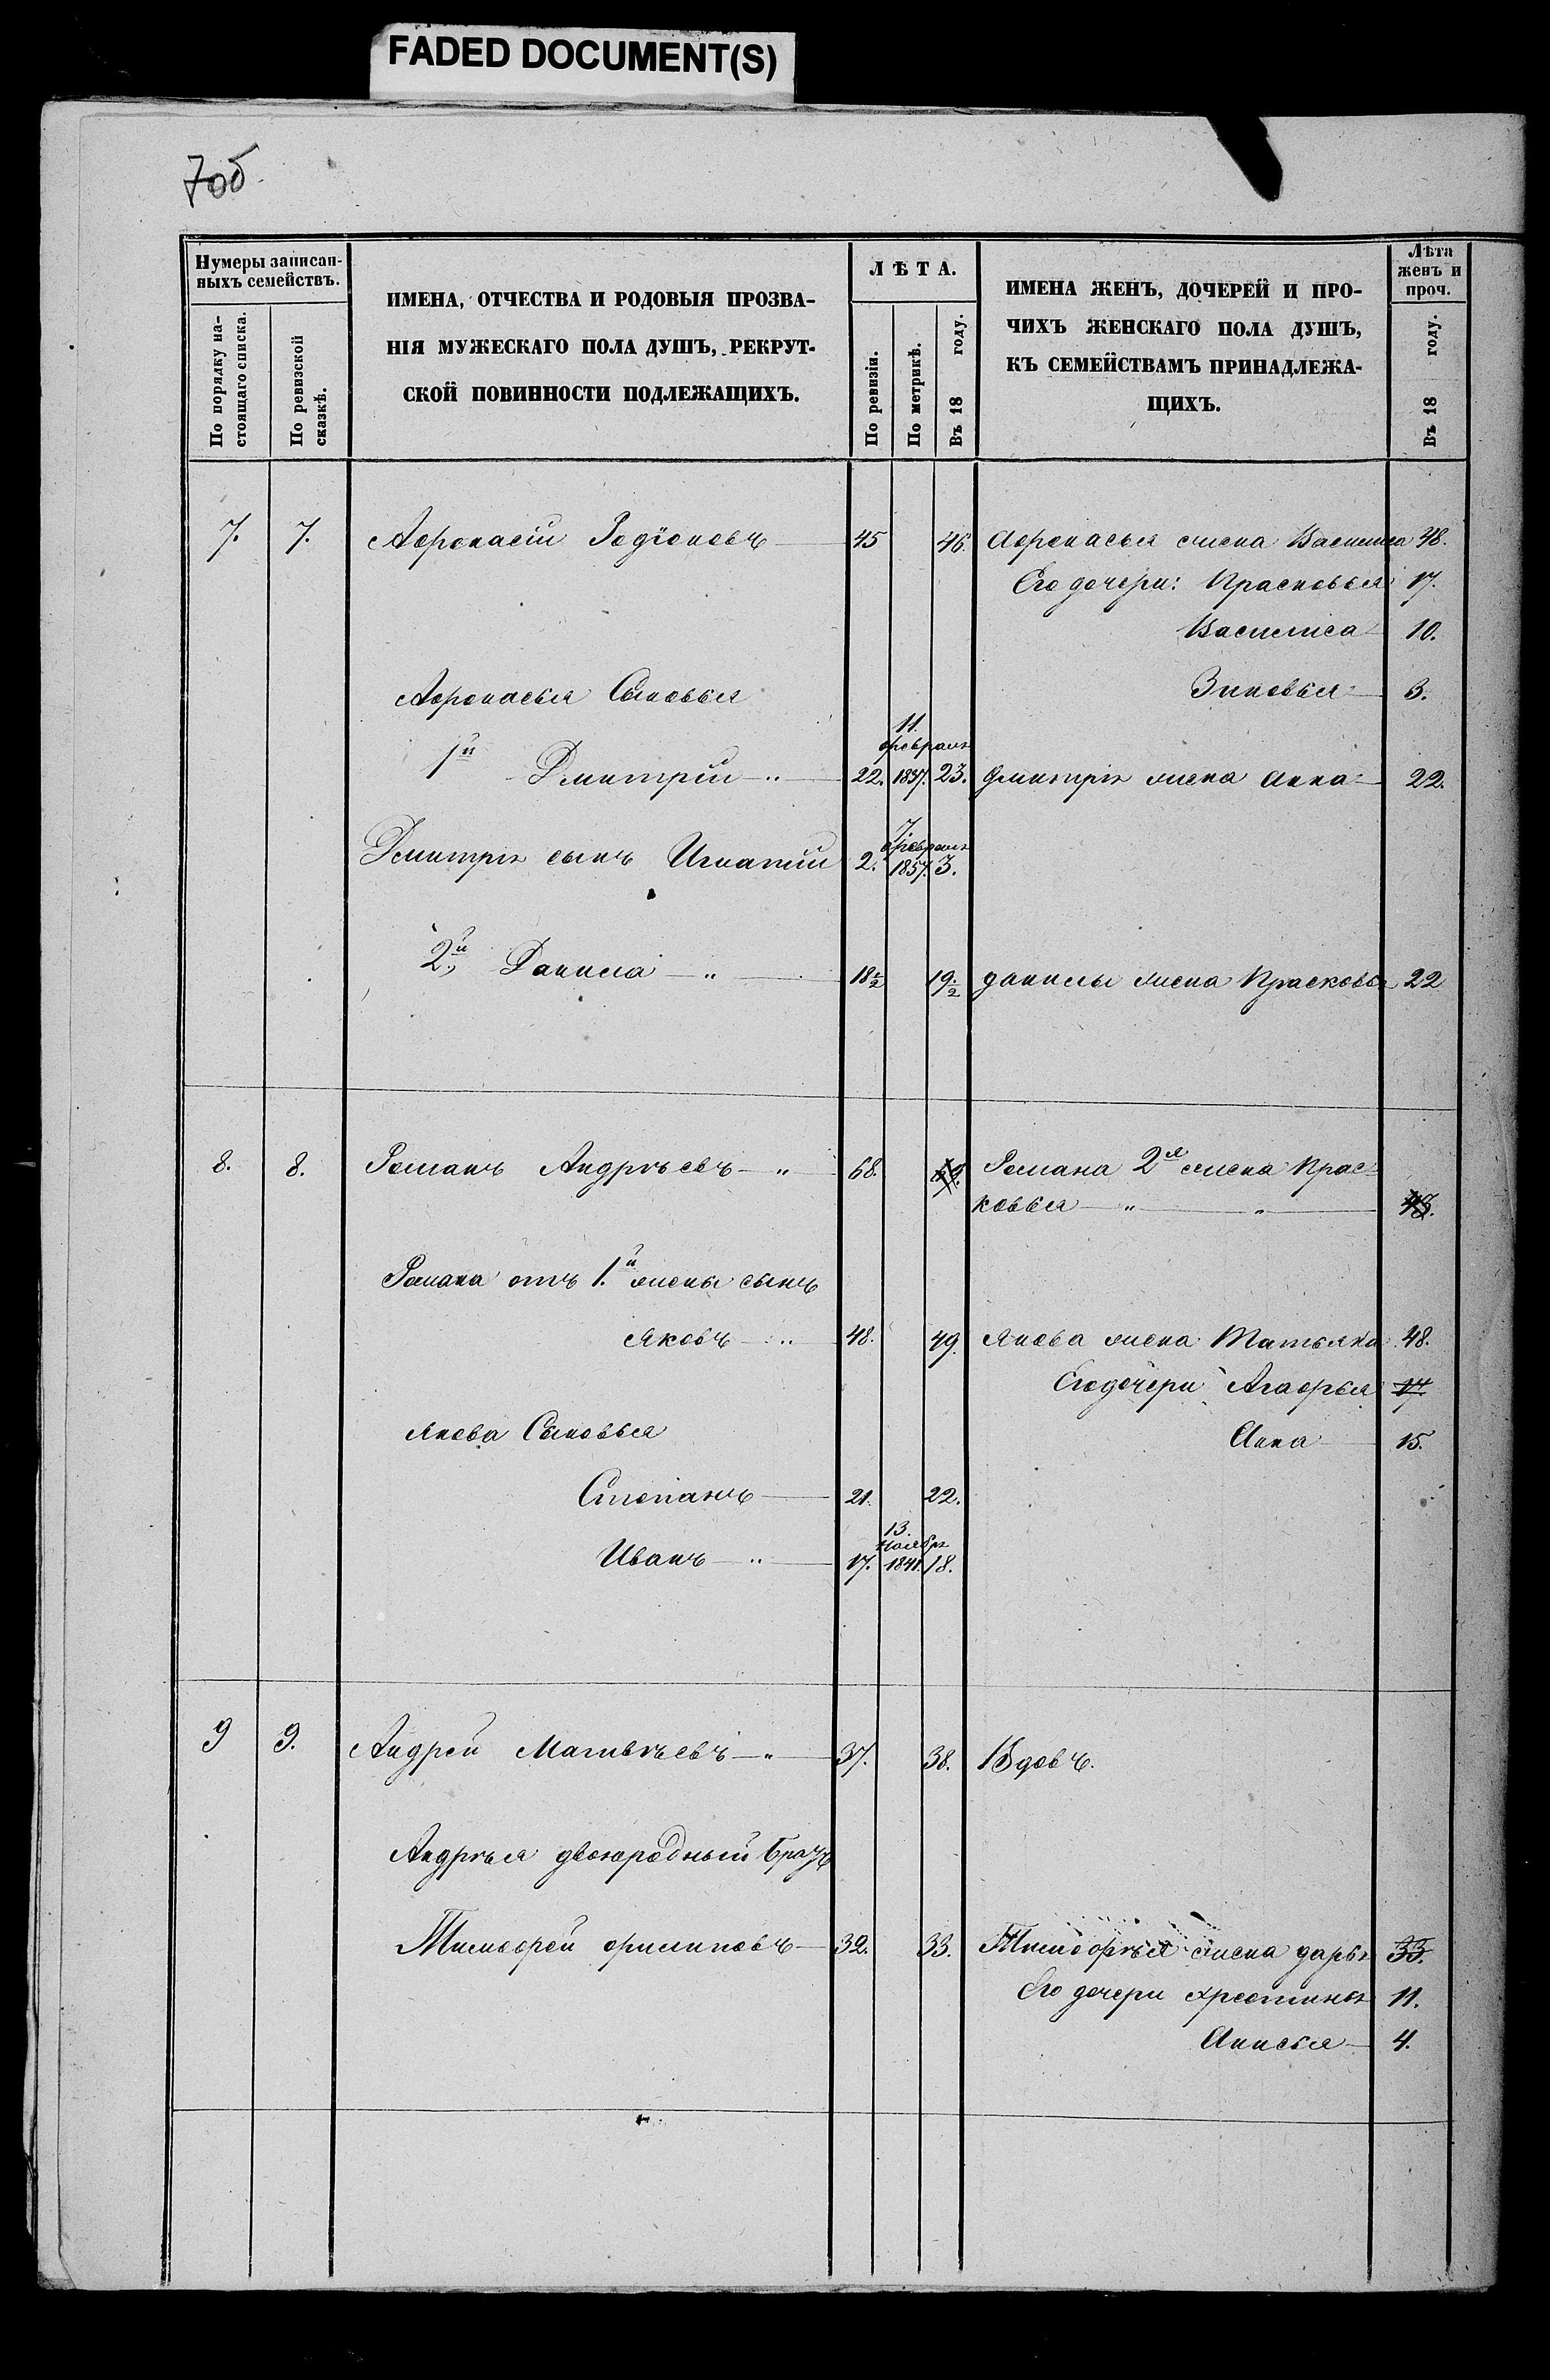 FADED DOCUMENT(S)
7об
Нумеры записан-
ныхъ семействъ.
По порядку на-
стоящаго списка.
По ревизской
сказкѣ.
ИМЕНА, ОТЧЕСТВА И РОДОВЫЯ ПРОЗВА-
НІЯ МУЖЕСКАГО ПОЛА ДУШЪ, РЕКРУТ-
СКОЙ ПОВИННОСТИ ПОДЛЕЖАЩИХЪ.
ЛѢТА.
По ревизіи.
По метрикѣ.
Въ 18 году.
ИМЕНА ЖЕНЪ, ДОЧЕРЕЙ И ПРО-
ЧИХЪ ЖЕНСКАГО ПОЛА ДУШЪ,
КЪ СЕМЕЙСТВАМЪ ПРИНАДЛЕЖА-
ЩИХЪ.
Лѣта
женъ и
проч.
Въ 18 году.
7. 7. Афонасій Родіоновъ 45 46. Афонасья жена Василиса 48.
Его дочери: Прасковья 17.
Василиса 10.
Зиновья 3.
Афонасья Сыновья
11.
февраля
1й Дмитрій 22. 1837. 23. Дмитрія жена Анна 22.
7.
февраля
Дмитрія сынъ Игнатій 2. 1857. 3.
2й Данила 18½ 19½ Данилы жена Прасковья 22
8. 8. Романъ Андрѣевъ 68. 69. Романа 2я жена Прас-
ковья 43.
Романа отъ 1.й жены сынъ
Яковъ 48. 49. Якова жена Татьяна 48.
Его дочери Агафья 17
Анна 15.
Якова Сыновья
Степанъ 21. 22.
13.
Ноября
Иванъ 17. 1841. 18.
9 9. Андрей Матвѣевъ 37. 38. Вдовъ.
Андрѣя двоюродный братъ
Тимофей Филиповъ 32. 33. Тимофѣя жена Дарья 33.
Его дочери Хрестинья 11.
Анисья 4.